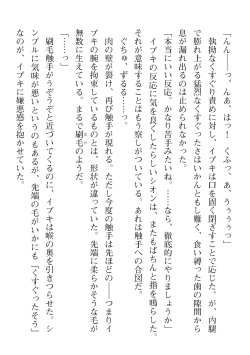 「んんーーっ、んぁ、はっー！　くふっ、あ、うぅぅぅっ」
　執拗なくすぐり責めに対し、イブキは口を固く閉ざすことで応じた。が、内腿
で膨れ上がる猛烈なくすぐったさはいかんともし難く、食い縛った歯の隙間から
息が漏れ出るのは止められなかった。
「本当にいい反応。かなり苦手みたいね……なら、徹底的にやりましょうか」
　イブキの反応に気を良くしたらしいシオンは、またもぱちんと指を鳴らした。
それが意味することはもう察しがついている。あれは触手への合図だ。
　ぐちゅ、ずるる……っ。
　肉の壁が裂け、再び触手が現れる。ただし今度の触手は先ほどの――つまりイ
ブキの腕を拘束しているものとは、形状が違っていた。先端に柔らかそうな毛が
無数に生えている、まるで刷毛のようだ。
「……っ」
　刷毛触手がうぞうぞと近づいてくるのに、イブキは喉の奥を引きつらせた。シ
ンプルに気味が悪いというのもあるが、先端の毛がいかにも「くすぐったそう」
なのが、イブキに嫌悪感を抱かせていた。